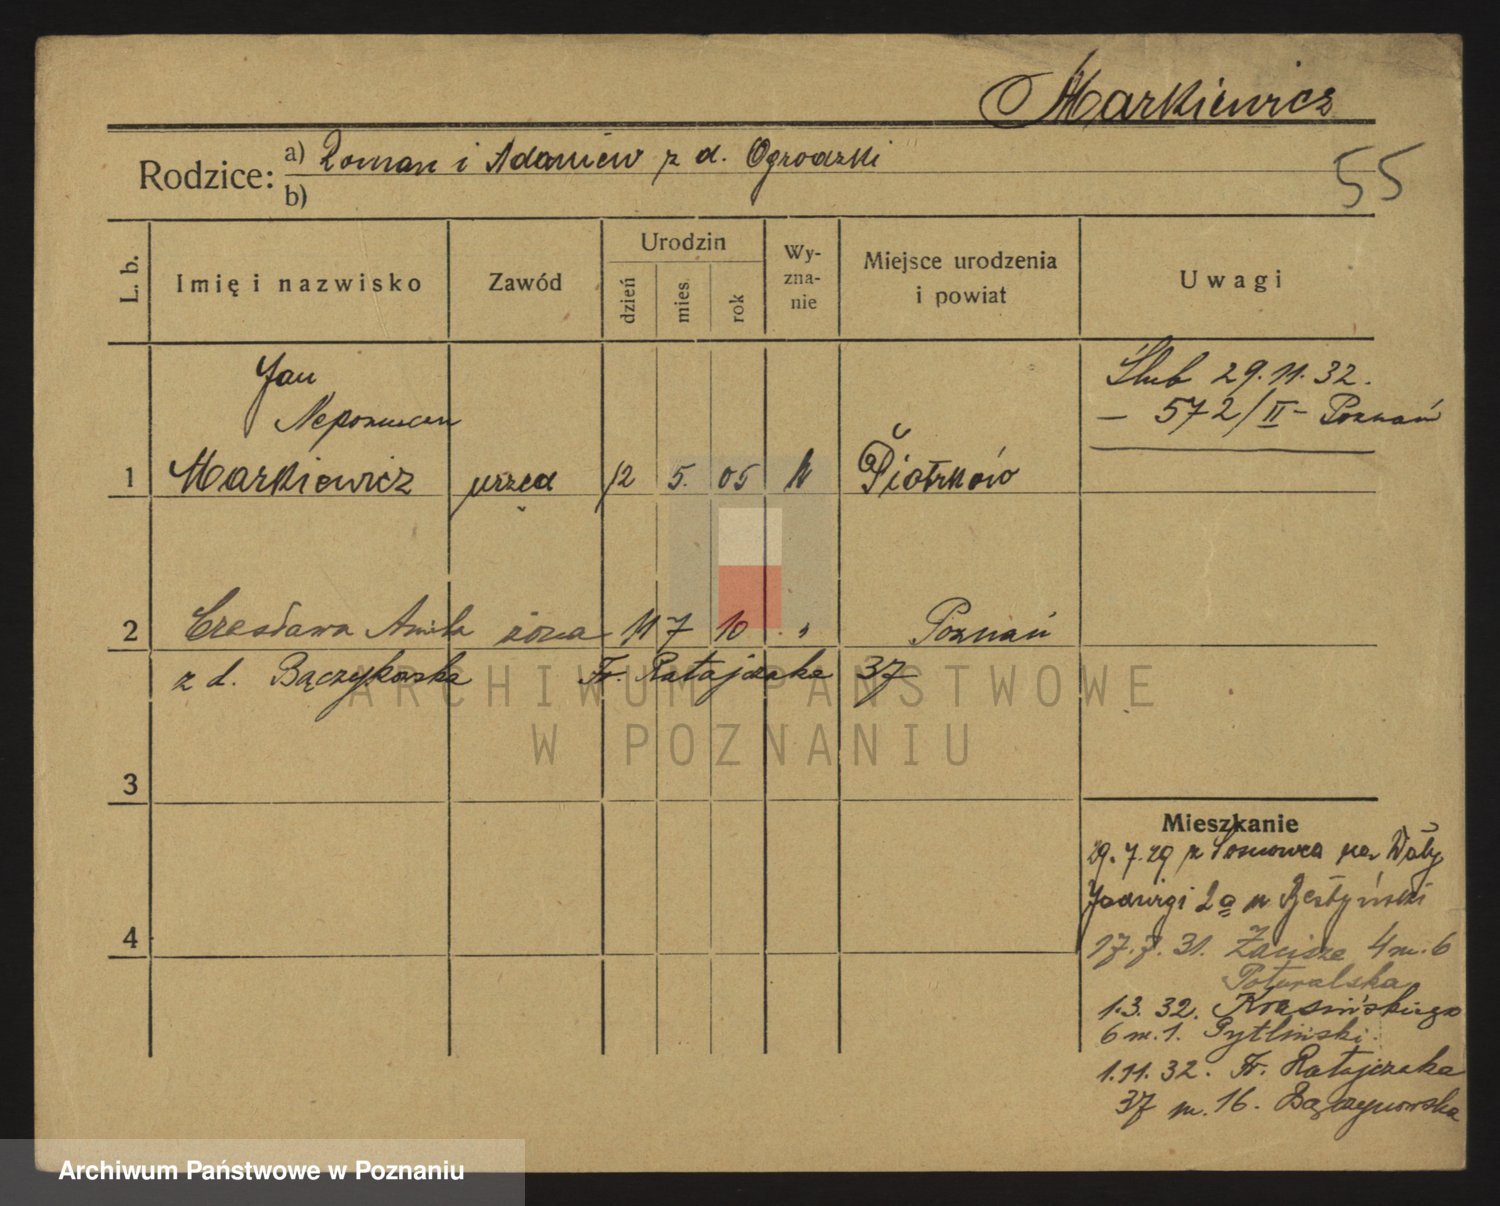 Markiewicz
Rodzice: a) Roman i z d. Ogrodzki
b)
55
L. b.
Imię i nazwisko
Zawód
Urodzin
dzień
mies.
rok
Wy-
zna-
nie
Miejsce urodzenia
i powiat
Uwagi
Jan
Nepomucen
1 Markiewicz urzęd 12 5. 05 k Piotrków
Ślub 29.11.32.
– 572/II – Poznań
2 Czesława Aniela żona 11 7 10 " Poznań
z d. Bączykowska Fr. Ratajczaka 37
3
4
Mieszkanie
29.7.29 z Sosnowca na Wały
Jadwigi 2a u
17.7.31. Zacisze 4 m. 6
Poturalska
1.3.32. Krasińskiego
6 m. 1.
1.11.32. Fr. Ratajczaka
37 m. 16.
ARCHIWUM PAŃSTWOWE
W POZNANIU
Archiwum Państwowe w Poznaniu